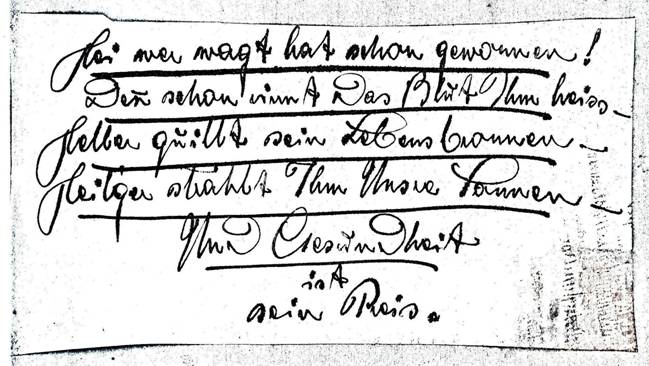 Hei wer wagt hat schon gewonnen!
Den̄ schon rinnt Das Blut Ihm heiss –
Heller quillt sein Lebensbronnen –
Heilger strahlt Ihm Unsre Sonnen –
Und Gesundheit
ist
sein Preis.